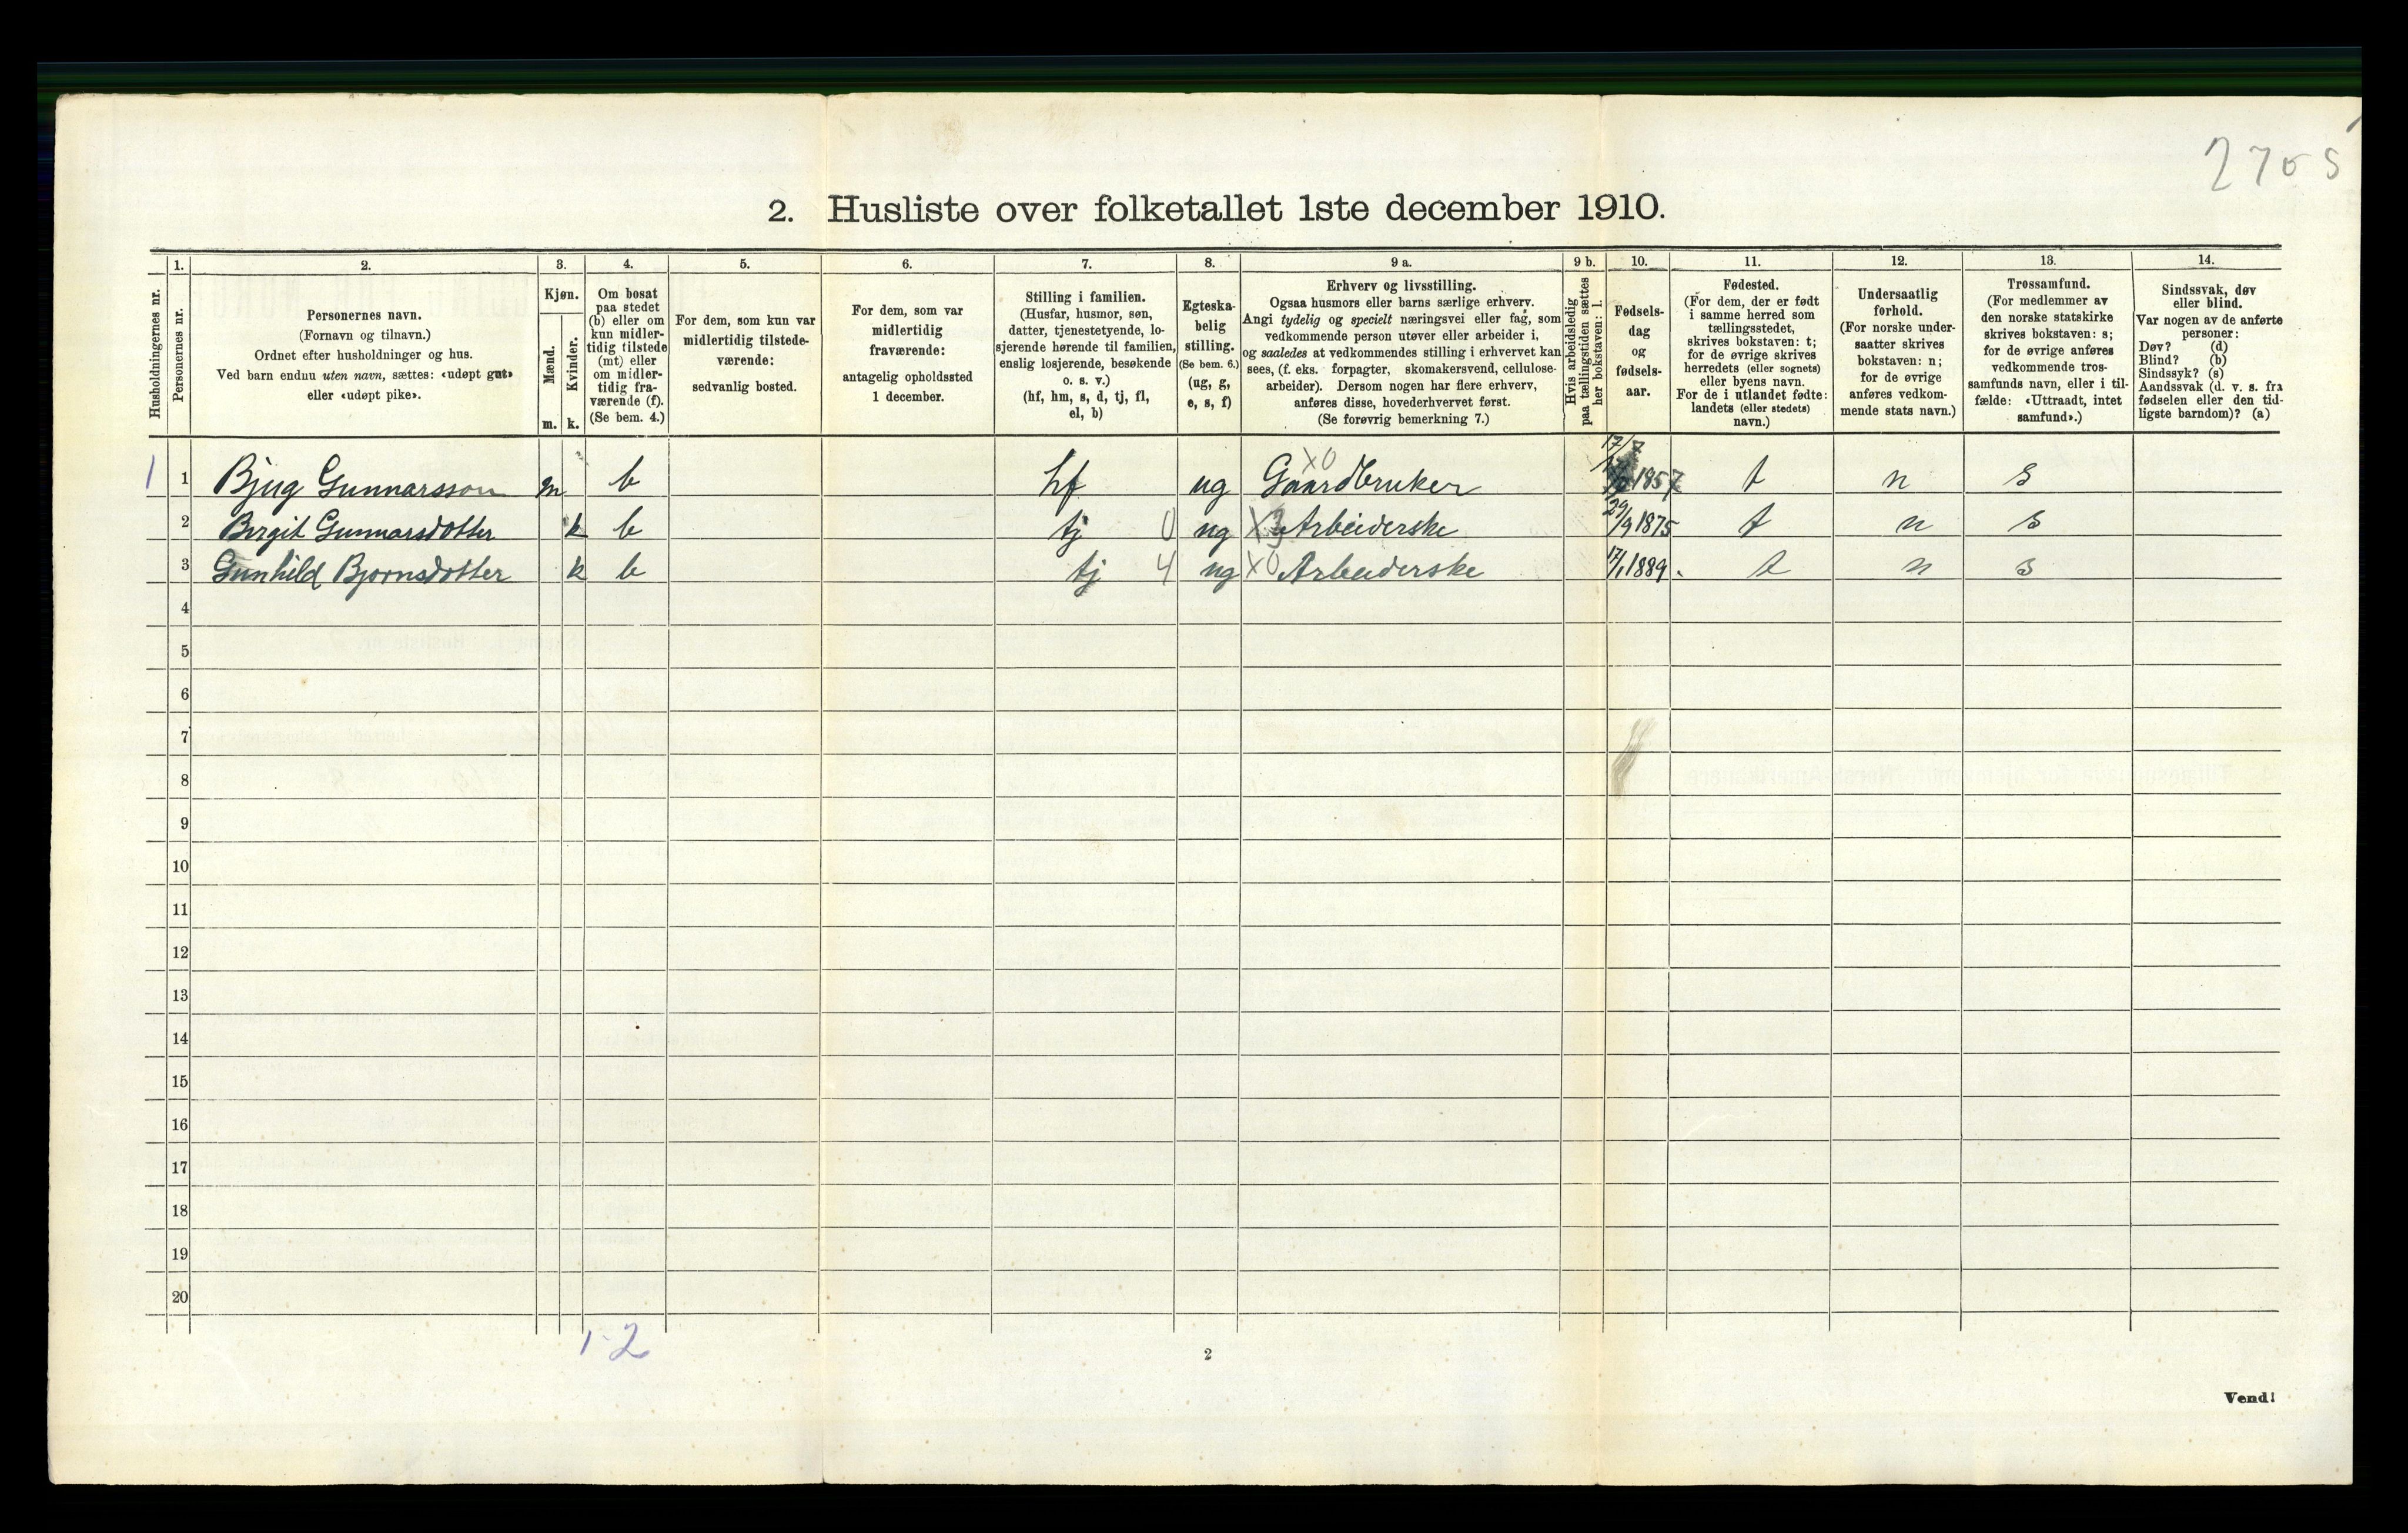 2705
2. Husliste over folketallet 1ste december 1910.
Husholdningernes nr.
1.
Personernes nr.
2.
Personernes navn.
(Fornavn og tilnavn.)
Ordnet efter husholdninger og hus.
Ved barn endnu uten navn, sættes: «udøpt gut»
eller «udøpt pike».
3.
Kjøn.
Mænd.
Kvinder.
m. k.
4.
Om bosat
paa stedet
(b) eller om
kun midler-
tidig tilstede
(mt) eller
om midler-
tidig fra-
værende (f).
(Se bem. 4.)
5.
For dem, som kun var
midlertidig tilstede-
værende:
sedvanlig bosted.
6.
For dem, som var
midlertidig
fraværende:
antagelig opholdssted
1 december.
7.
Stilling i familien.
(Husfar, husmor, søn,
datter, tjenestetyende, lo-
sjerende hørende til familien,
enslig losjerende, besøkende
o. s. v.)
(hf, hm, s, d, tj, fl,
el, b)
8.
Egteska-
belig
stilling.
(Se bem. 6.)
(ug, g,
e, s, f)
9 a.
Erhverv og livsstilling.
Ogsaa husmors eller barns særlige erhverv.
Angi tydelig og specielt næringsvei eller fag, som
vedkommende person utøver eller arbeider i,
og saaledes at vedkommendes stilling i erhvervet kan
sees, (f. eks. forpagter, skomakersvend, cellulose-
arbeider). Dersom nogen har flere erhverv,
anføres disse, hovederhvervet først.
(Se forøvrig bemerkning 7.)
9 b.
Hvis arbeidsledig
paa tællingstiden sættes
her bokstaven: l.
10.
Fødsels-
dag
og
fødsels-
aar.
11.
Fødested.
(For dem, der er født
i samme herred som
tællingsstedet,
skrives bokstaven: t;
for de øvrige skrives
herredets (eller sognets)
eller byens navn.
For de i utlandet fødte:
landets (eller stedets)
navn.)
12.
Undersaatlig
forhold.
(For norske under-
saatter skrives
bokstaven: n;
for de øvrige
anføres vedkom-
mende stats navn.)
13.
Trossamfund.
(For medlemmer av
den norske statskirke
skrives bokstaven: s;
for de øvrige anføres
vedkommende tros-
samfunds navn, eller i til-
fælde: «Uttraadt, intet
samfund».)
14.
Sindssvak, døv
eller blind.
Var nogen av de anførte
personer:
Døv? (d)
Blind? (b)
Sindssyk? (s)
Aandssvak (d. v. s. fra
fødselen eller den tid-
ligste barndom)? (a)
1 1 Bjug Gunnarsson m b hf ug X0 Gaardbruker 17/7 1857 t n s
2 Birgit Gunnarsdotter k b tj 0 ug X3 Arbeiderske 29/9 1875 t n s
3 Gunhild Bjornsdotter k b tj 4 ug X0 Arbeiderske 17/1 1889. t n s
4
5
6
7
8
9
10
11
12
13
14
15
16
17
18
19
20
1-2
2
Vend!